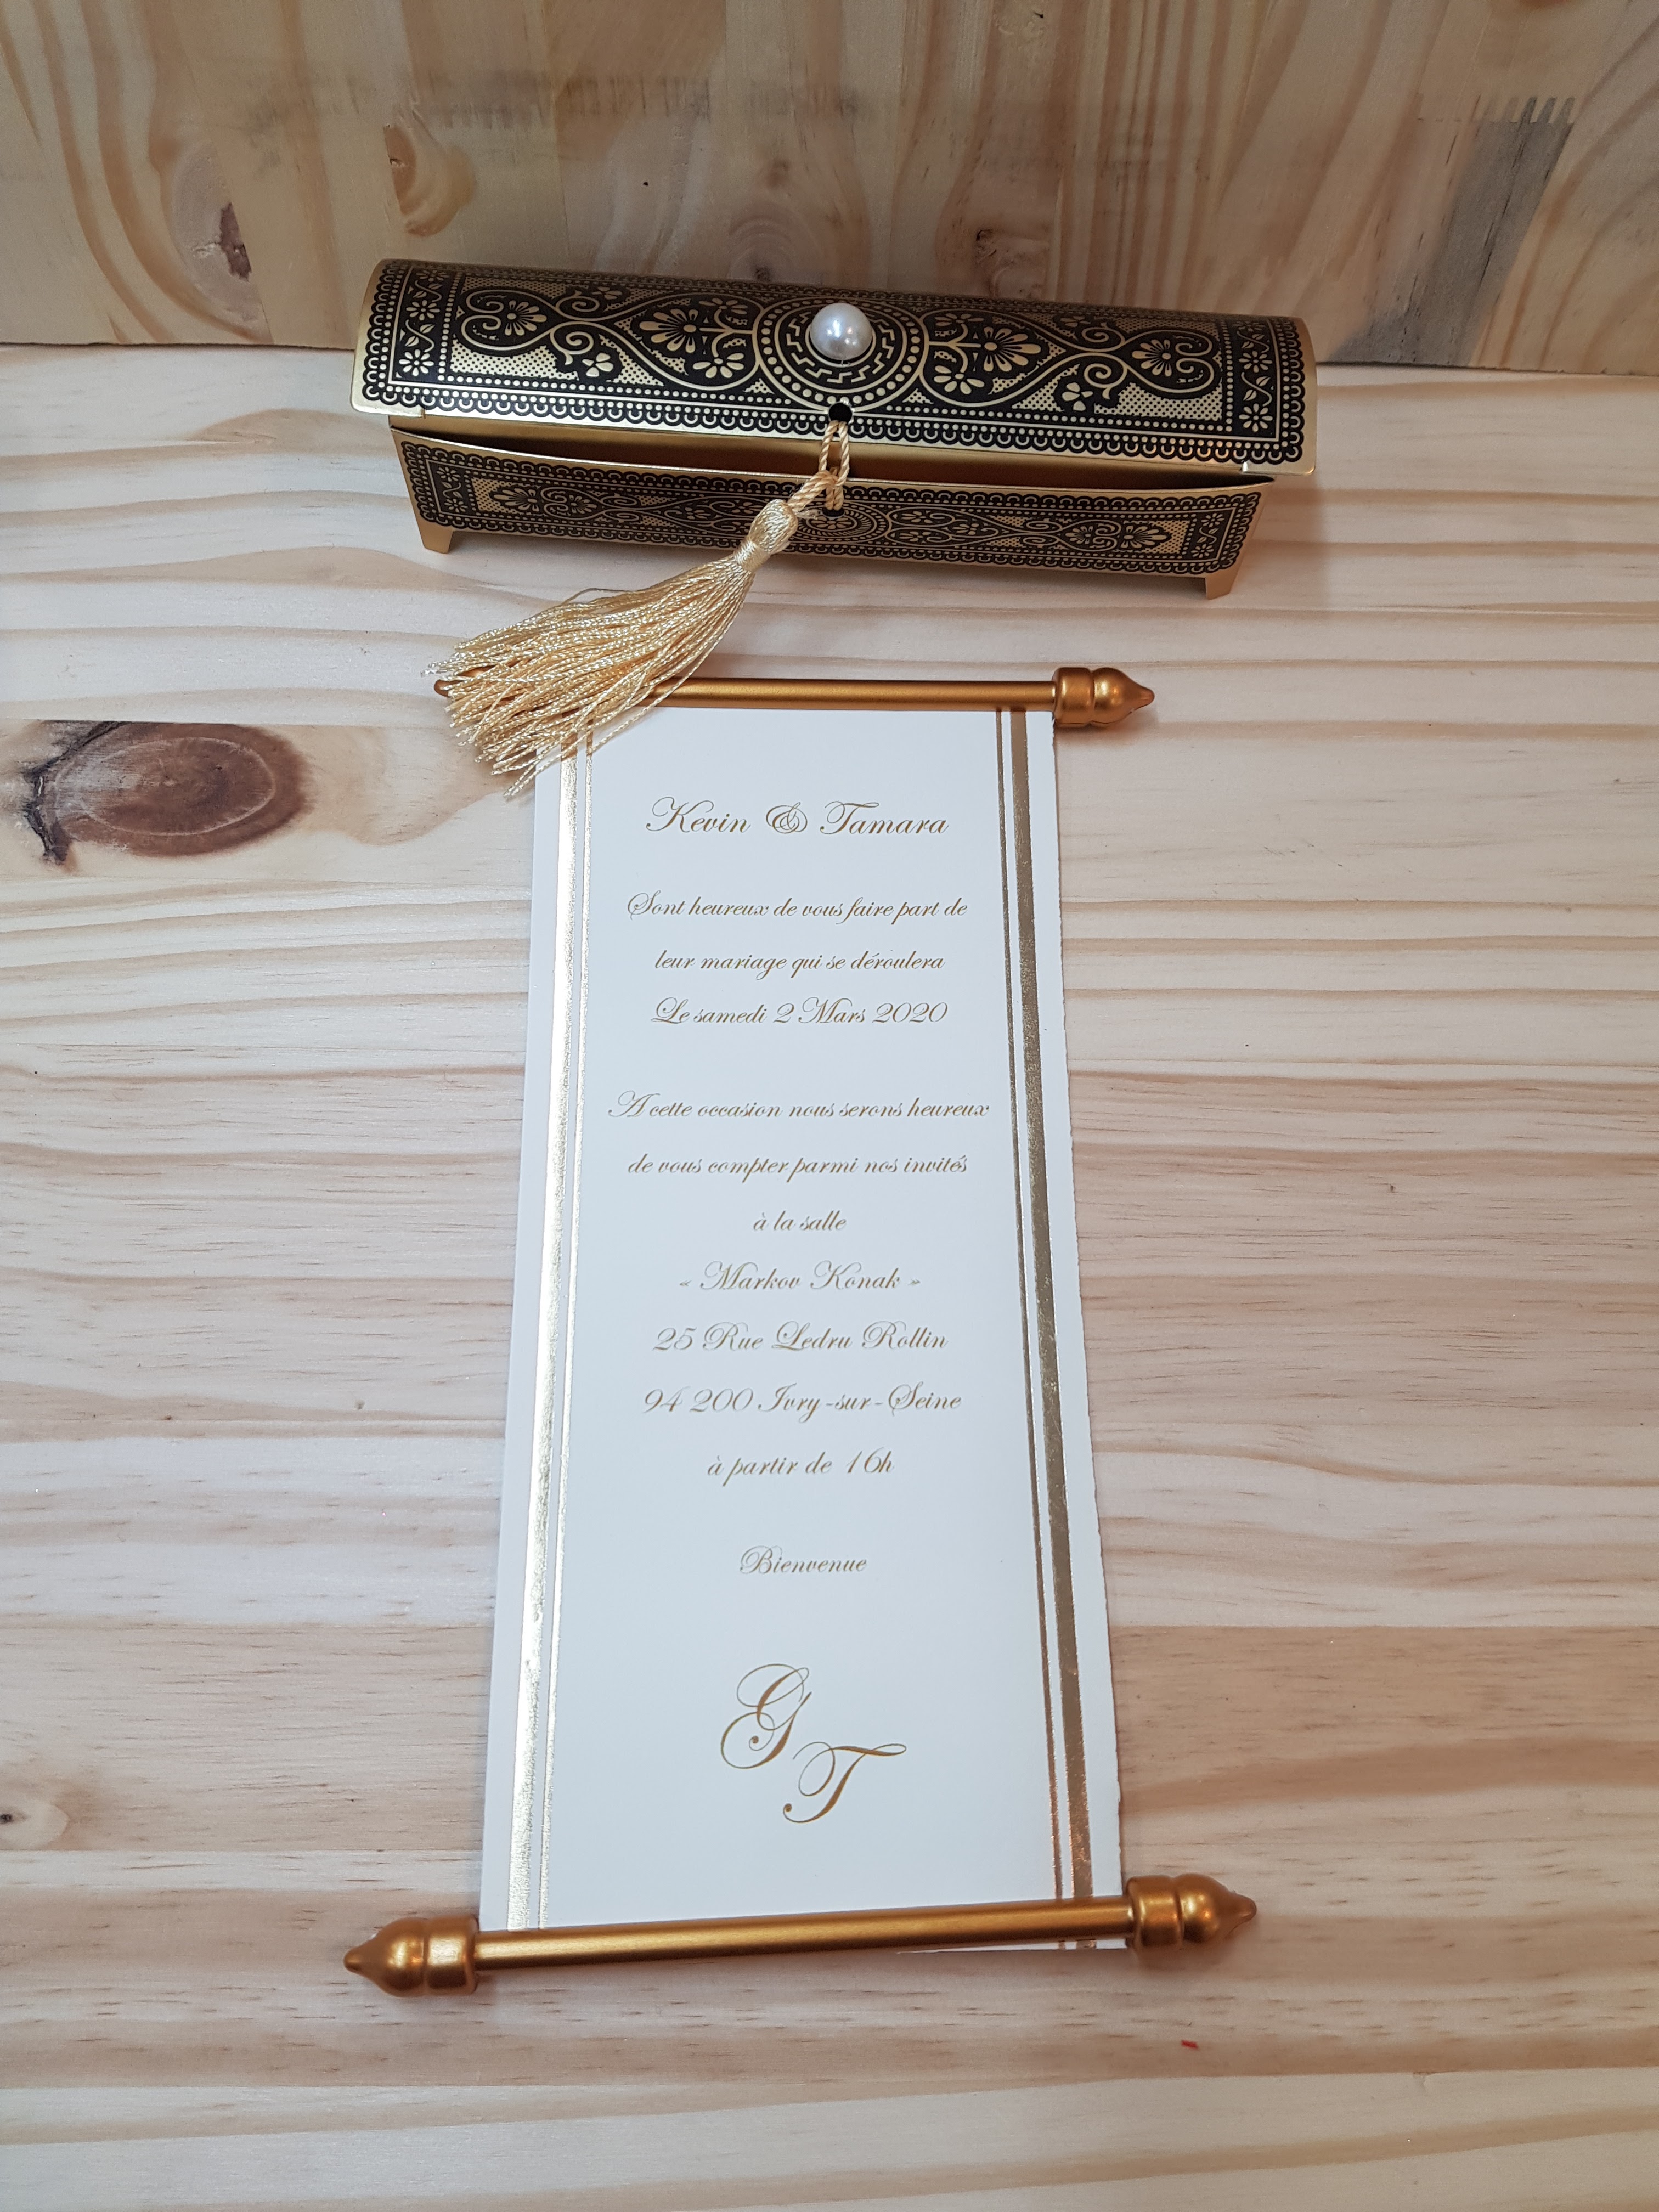 Kevin & Tamara
Sont heureux de vous faire part de
leur mariage qui se déroulera
Le samedi 2 Mars 2020
A cette occasion nous serons heureux
de vous compter parmi nos invités
à la salle
« Markov Konak »
25 Rue Ledru Rollin
94 200 Ivry-sur-Seine
à partir de 16h
Bienvenue
G
T